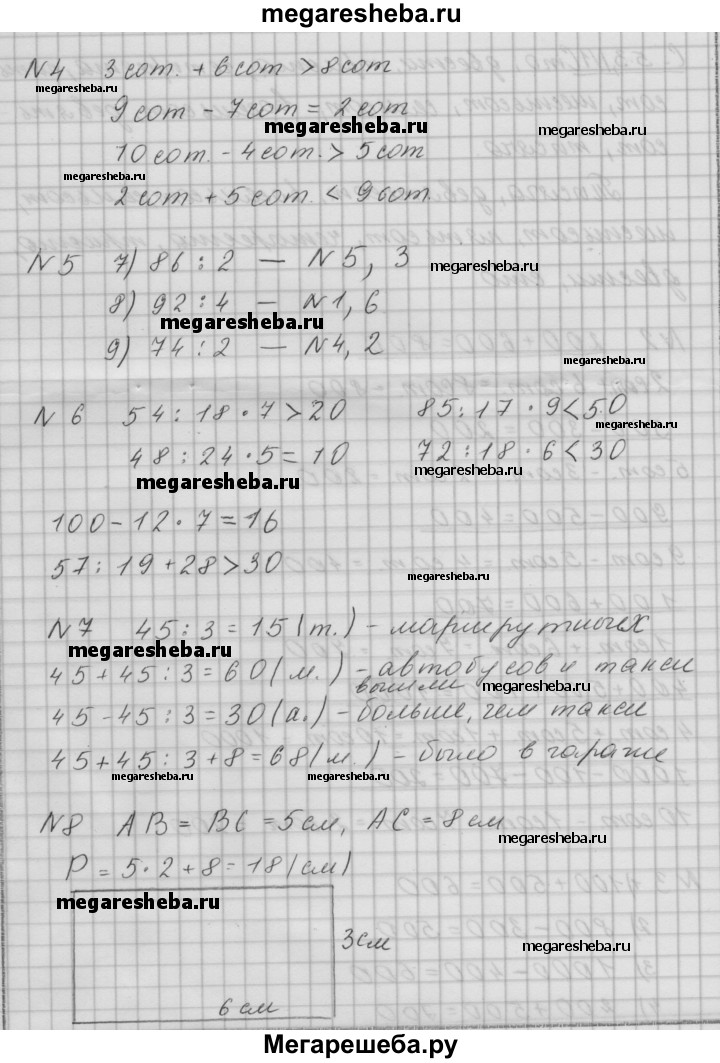 megaresheba.ru
N4 3 сот. + 6 сот > 8 сот
megaresheba.ru
9 сот - 7 сот = 2 сот
megaresheba.ru
megaresheba.ru
10 сот. - 4 сот. > 5 сот
megaresheba.ru
2 сот + 5 сот. < 9 сот.
N5 7) 86 : 2 — N5, 3
megaresheba.ru
8) 92 : 4 — N1, 6
megaresheba.ru
9) 74 : 2 — N4, 2
megaresheba.ru
N 6 54 : 18 · 7 > 20 85 : 17 · 9 < 50
megaresheba.ru
48 : 24 · 5 = 10 72 : 18 · 6 < 30
megaresheba.ru
megaresheba.ru
100 - 12 · 7 = 16
57 : 19 + 28 > 30
megaresheba.ru
N7 45 : 3 = 15 (т.) - маршрутных
megaresheba.ru
45 + 45 : 3 = 60 (м.) - автобусов и такси
выехали
megaresheba.ru
45 - 45 : 3 = 30 (а.) - больше, чем такси
45 + 45 : 3 + 8 = 68 (м.) - было в гараже
megaresheba.ru
megaresheba.ru
N8 АВ = ВС = 5 см, АС = 8 см
megaresheba.ru
Р = 5 · 2 + 8 = 18 (см)
megaresheba.ru
3 см
megaresheba.ru
6 см
Мегарешеба.ру